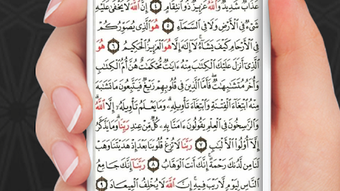 عَذَابٌ شَدِيدٌ وَٱللَّهُ عَزِيزٌ ذُو ٱنتِقَامٍ ٤ إِنَّ ٱللَّهَ لَا يَخْفَىٰ عَلَيْهِ
شَىْءٌ فِى ٱلْأَرْضِ وَلَا فِى ٱلسَّمَآءِ ٥ هُوَ ٱلَّذِى يُصَوِّرُكُمْ
فِى ٱلْأَرْحَامِ كَيْفَ يَشَآءُ لَآ إِلَٰهَ إِلَّا هُوَ ٱلْعَزِيزُ ٱلْحَكِيمُ ٦ هُوَ
ٱلَّذِىٓ أَنزَلَ عَلَيْكَ ٱلْكِتَٰبَ مِنْهُ ءَايَٰتٌ مُّحْكَمَٰتٌ هُنَّ أُمُّ ٱلْكِتَٰبِ
وَأُخَرُ مُتَشَٰبِهَٰتٌ فَأَمَّا ٱلَّذِينَ فِى قُلُوبِهِمْ زَيْغٌ فَيَتَّبِعُونَ مَا تَشَٰبَهَ
مِنْهُ ٱبْتِغَآءَ ٱلْفِتْنَةِ وَٱبْتِغَآءَ تَأْوِيلِهِۦ وَمَا يَعْلَمُ تَأْوِيلَهُۥٓ إِلَّا ٱللَّهُ
وَٱلرَّٰسِخُونَ فِى ٱلْعِلْمِ يَقُولُونَ ءَامَنَّا بِهِۦ كُلٌّ مِّنْ عِندِ رَبِّنَا وَمَا يَذَّكَّرُ
إِلَّآ أُو۟لُوا۟ ٱلْأَلْبَٰبِ ٧ رَبَّنَا لَا تُزِغْ قُلُوبَنَا بَعْدَ إِذْ هَدَيْتَنَا وَهَبْ
لَنَا مِن لَّدُنكَ رَحْمَةً إِنَّكَ أَنتَ ٱلْوَهَّابُ ٨ رَبَّنَآ إِنَّكَ جَامِعُ
ٱلنَّاسِ لِيَوْمٍ لَّا رَيْبَ فِيهِ إِنَّ ٱللَّهَ لَا يُخْلِفُ ٱلْمِيعَادَ ٩